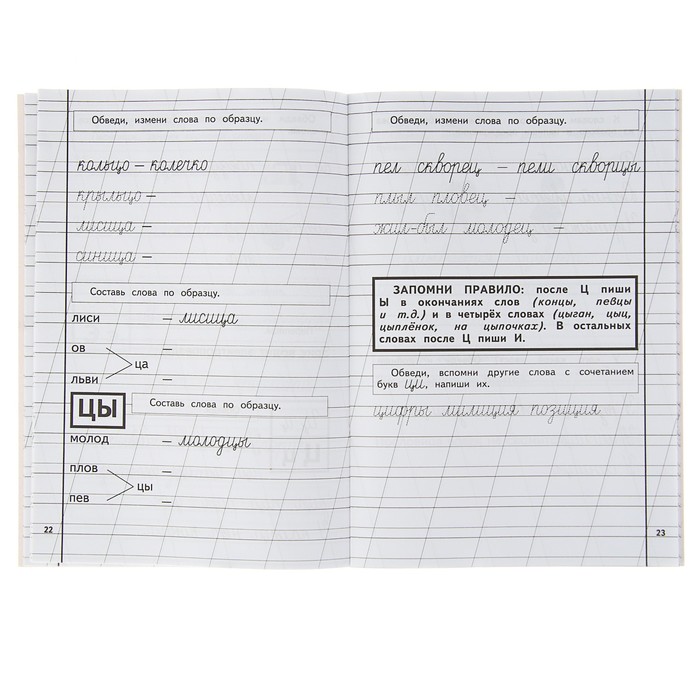 Обведи, измени слова по образцу.
кольцо – колечко
крыльцо –
лисица –
синица –
Составь слова по образцу.
лиси – лисица
ов –
ца
льви –
ЦЫ Составь слова по образцу.
молод – молодцы
плов –
цы
пев –
22
Обведи, измени слова по образцу.
пел скворец – пели скворцы
плыл пловец –
жил-был молодец –
ЗАПОМНИ ПРАВИЛО: после Ц пиши
Ы в окончаниях слов (концы, певцы
и т.д.) и в четырёх словах (цыган, цыц,
цыплёнок, на цыпочках). В остальных
словах после Ц пиши И.
Обведи, вспомни другие слова с сочетанием
букв ЦИ, напиши их.
цифры милиция позиция
23